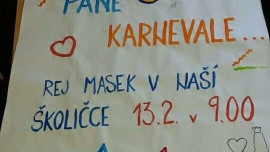 PANE
KARNEVALE...
REJ MASEK V NAŠÍ
ŠKOLIČCE 13.2. v 9.00